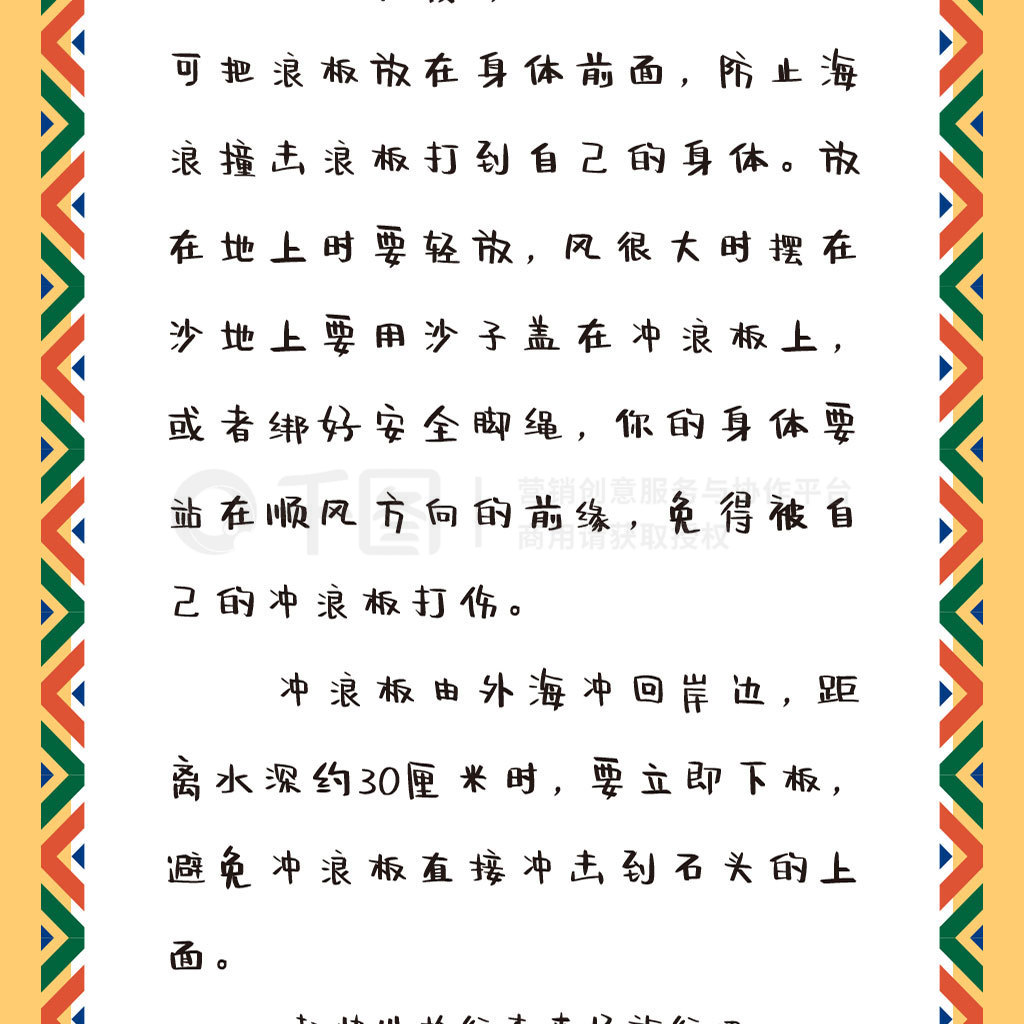 可把浪板放在身体前面，防止海
浪撞击浪板打到自己的身体。放
在地上时要轻放，风很大时摆在
沙地上要用沙子盖在冲浪板上，
或者绑好安全脚绳，你的身体要
千图 营销创意服务与协作平台
商用请获取授权
站在顺风方向的前缘，免得被自
己的冲浪板打伤。
冲浪板由外海冲回岸边，距
离水深约30厘米时，要立即下板，
避免冲浪板直接冲击到石头的上
面。